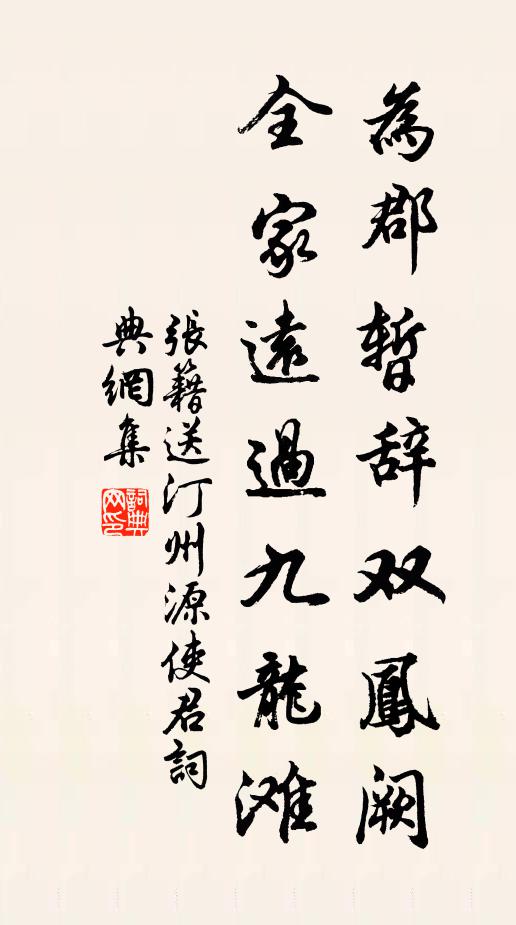 為郡暫辞双鳳阙
全家遠過九龍滩
張籍送汀州源使君詞
典網集
詞典
网印